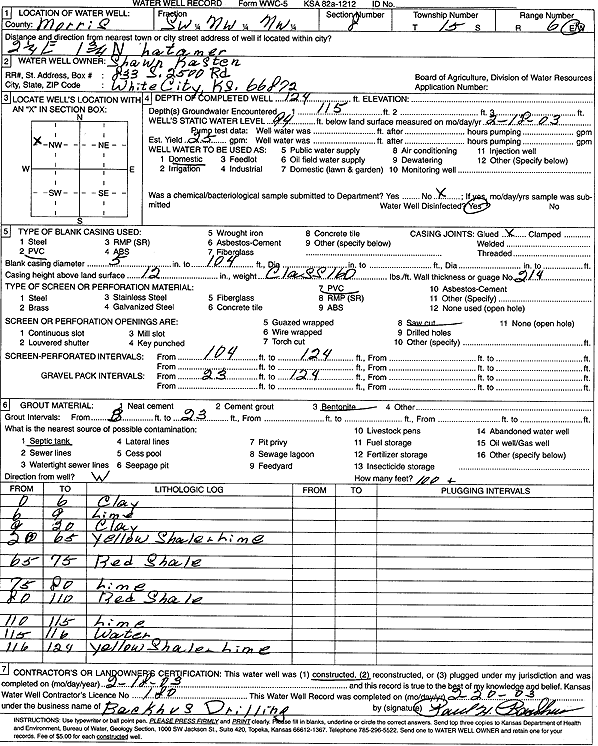 WATER WELL RECORD Form WWC-5 KSA 82a-1212 ID No.
1 LOCATION OF WATER WELL: Fraction Section Number Township Number Range Number
County: Morris SW ¼ NW ¼ NW ¼ 8 T 15 S R 6 E/W
Distance and direction from nearest town or city street address of well if located within city?
2¾ E 1¾ N
2 WATER WELL OWNER: Shawn Kasten
RR#, St. Address, Box # : 833 S. 2500 Rd Board of Agriculture, Division of Water Resources
City, State, ZIP Code : White City, KS. 66872 Application Number:
3 LOCATE WELL'S LOCATION WITH AN "X" IN SECTION BOX:
N
X NW NE
W E
SW SE
S
4 DEPTH OF COMPLETED WELL 124 ft. ELEVATION:
Depth(s) Groundwater Encountered 1 115 ft. 2 ft. 3 ft.
WELL'S STATIC WATER LEVEL 94 ft. below land surface measured on mo/day/yr 2-18-03
Pump test data: Well water was ft. after hours pumping gpm
Est. Yield 25 gpm: Well water was ft. after hours pumping gpm
WELL WATER TO BE USED AS: 5 Public water supply 8 Air conditioning 11 Injection well
1 Domestic 3 Feedlot 6 Oil field water supply 9 Dewatering 12 Other (Specify below)
2 Irrigation 4 Industrial 7 Domestic (lawn & garden) 10 Monitoring well
Was a chemical/bacteriological sample submitted to Department? Yes No X ; If yes, mo/day/yrs sample was submitted Water Well Disinfected? Yes No
5 TYPE OF BLANK CASING USED: 5 Wrought iron 8 Concrete tile CASING JOINTS: Glued X Clamped
1 Steel 3 RMP (SR) 6 Asbestos-Cement 9 Other (specify below) Welded
2 PVC 4 ABS 7 Fiberglass Threaded
Blank casing diameter 5 in. to 104 ft., Dia in. to ft., Dia in. to ft.
Casing height above land surface 12 in., weight Class 160 lbs./ft. Wall thickness or guage No. 214
TYPE OF SCREEN OR PERFORATION MATERIAL: 7 PVC 10 Asbestos-Cement
1 Steel 3 Stainless Steel 5 Fiberglass 8 RMP (SR) 11 Other (Specify)
2 Brass 4 Galvanized Steel 6 Concrete tile 9 ABS 12 None used (open hole)
SCREEN OR PERFORATION OPENINGS ARE: 5 Guazed wrapped 8 Saw cut 11 None (open hole)
1 Continuous slot 3 Mill slot 6 Wire wrapped 9 Drilled holes
2 Louvered shutter 4 Key punched 7 Torch cut 10 Other (specify) ft.
SCREEN-PERFORATED INTERVALS: From 104 ft. to 124 ft., From ft. to ft.
From ft. to ft., From ft. to ft.
GRAVEL PACK INTERVALS: From 23 ft. to 124 ft., From ft. to ft.
From ft. to ft., From ft. to ft.
6 GROUT MATERIAL: 1 Neat cement 2 Cement grout 3 Bentonite 4 Other
Grout Intervals: From 3 ft. to 23 ft., From ft. to ft., From ft. to ft.
What is the nearest source of possible contamination: 10 Livestock pens 14 Abandoned water well
1 Septic tank 4 Lateral lines 7 Pit privy 11 Fuel storage 15 Oil well/Gas well
2 Sewer lines 5 Cess pool 8 Sewage lagoon 12 Fertilizer storage 16 Other (specify below)
3 Watertight sewer lines 6 Seepage pit 9 Feedyard 13 Insecticide storage
Direction from well? W How many feet? 100 +
FROM TO LITHOLOGIC LOG FROM TO PLUGGING INTERVALS
0 6 Clay
6 9 Lime
9 20 Clay
20 65 Yellow Shale+Lime
65 75 Red Shale
75 80 Lime
80 110 Red Shale
110 115 Lime
115 116 Water
116 124 Yellow Shale+Lime
7 CONTRACTOR'S OR LANDOWNER'S CERTIFICATION: This water well was (1) constructed, (2) reconstructed, or (3) plugged under my jurisdiction and was
completed on (mo/day/year) 2-18-03 and this record is true to the best of my knowledge and belief. Kansas
Water Well Contractor's Licence No 180 This Water Well Record was completed on (mo/day/yr) 2-20-03
under the business name of Backhus Drilling by (signature)
INSTRUCTIONS: Use typewriter or ball point pen. PLEASE PRESS FIRMLY and PRINT clearly. Please fill in blanks, underline or circle the correct answers. Send top three copies to Kansas Department of Health
and Environment, Bureau of Water, Geology Section, 1000 SW Jackson St., Suite 420, Topeka, Kansas 66612-1367. Telephone 785-296-5522. Send one to WATER WELL OWNER and retain one for your
records. Fee of $5.00 for each constructed well.